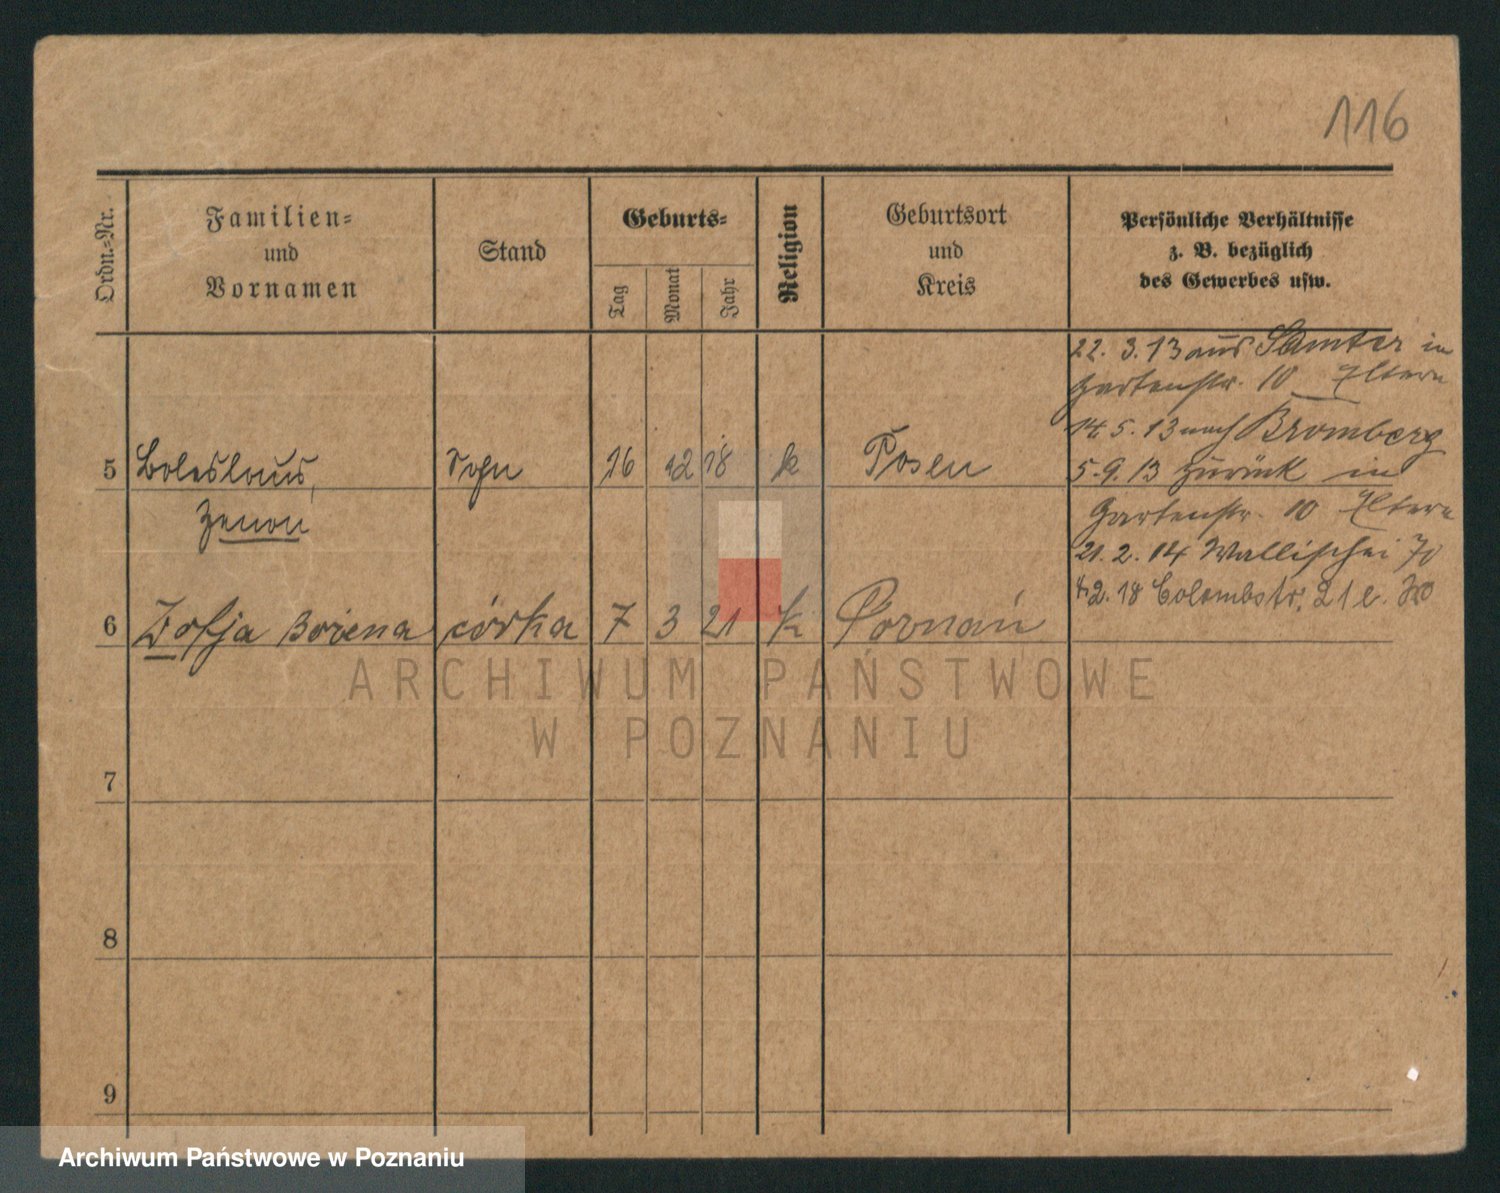 116
Ordn.-Nr.
Familien-
und
Vornamen
Stand
Geburts-
Tag
Monat
Jahr
Religion
Geburtsort
und
Kreis
Persönliche Verhältnisse
z. B. bezüglich
des Gewerbes usw.
22. 3. 13 aus Samter in
Gartenstr. 10 Eltern
14. 5. 13 nach Bromberg
5. 9. 13 zurück in
Gartenstr. 10 Eltern
21. 2. 14 Wallischei 70
4. 2. 18 Colombstr. 21 e.
5 Boleslaus, Sohn 16 12 18 k Posen
Zenon
6 Zofja Bożena córka 7 3 21 k Poznań
7
8
9
ARCHIWUM PAŃSTWOWE
W POZNANIU
Archiwum Państwowe w Poznaniu